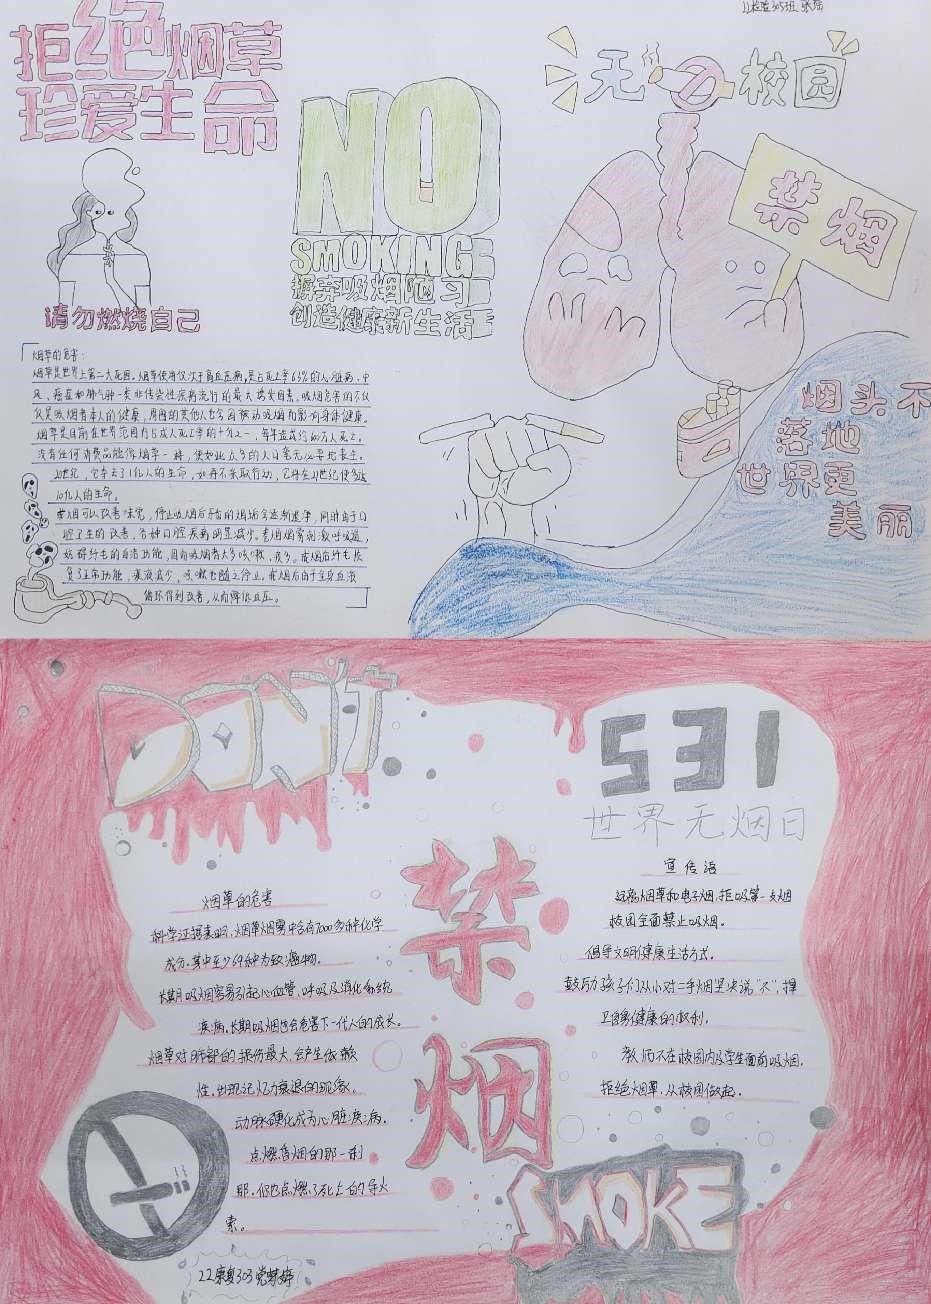 22检验305班
拒绝烟草
珍爱生命
无 校园
NO
SMOKING
摒弃吸烟陋习
创造健康新生活
禁烟
请勿燃烧自己
烟草的危害:
烟草是世界上第二大死因。烟草使用仅次于高血压病,是占死亡率63%的心脏病、中
风、癌症和肺气肿一类非传染性疾病流行的最大诱发因素。吸烟危害的不仅
仅是吸烟者本人的健康,周围的其他人也会因被动吸烟而影响身体健康。
烟草是目前在世界范围内占成人死亡率的十分之一,每年造成约600万人死亡。
没有任何消费品能像烟草一样,使如此众多的人口毫无必要地丧生。
20世纪,它夺去了1亿人的生命,如再不采取行动,它将在21世纪使多达
10亿人的生命。
戒烟可以改善味觉,停止吸烟后牙齿的烟垢会逐渐遮净,同时由于口
腔卫生的改善,各种口腔疾病明显减少。
复了正常功能,痰液减少,咳嗽也随之停止。戒烟后由于全身血液
循环得到改善,从而降低血压。
烟头不
落地
世界更
美丽
DON'T
531
世界无烟日
烟草的危害
科学证据表明,烟草烟雾中含有7000多种化学
成分,其中至少69种为致癌物。
长期吸烟容易引起心血管、呼吸及消化系统
疾病,长期吸烟也会危害下一代人的成长。
烟草对肺部的损伤最大,会产生依赖
性,出现记忆力衰退的现象。
动脉硬化成为心脏疾病。
点燃香烟的那一刹
那,你也点燃了死亡的导火
索。
禁
烟
宣传语
远离烟草和电子烟,拒吸第一支烟
校园全面禁止吸烟。
倡导文明健康生活方式。
鼓励孩子们从小对二手烟坚决说“不”,捍
卫自身健康的权利。
教师不在校园内及学生面前吸烟。
拒绝烟草,从校园做起。
SMOKE
22康复303